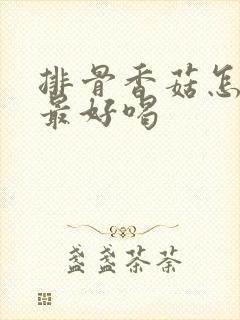 排骨香菇怎
最好喝
盏盏茶荼